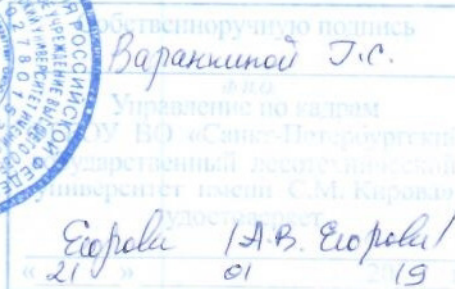 собственноручную подпись
Варанкиной Г.С.
Ф.И.О.
Управление по кадрам
ВО «Санкт-Петербургский
государственный лесотехнический
университет имени С.М. Кирова»
удостоверяет
Егорова /А.В. Егорова/
« 21 » 01 2019